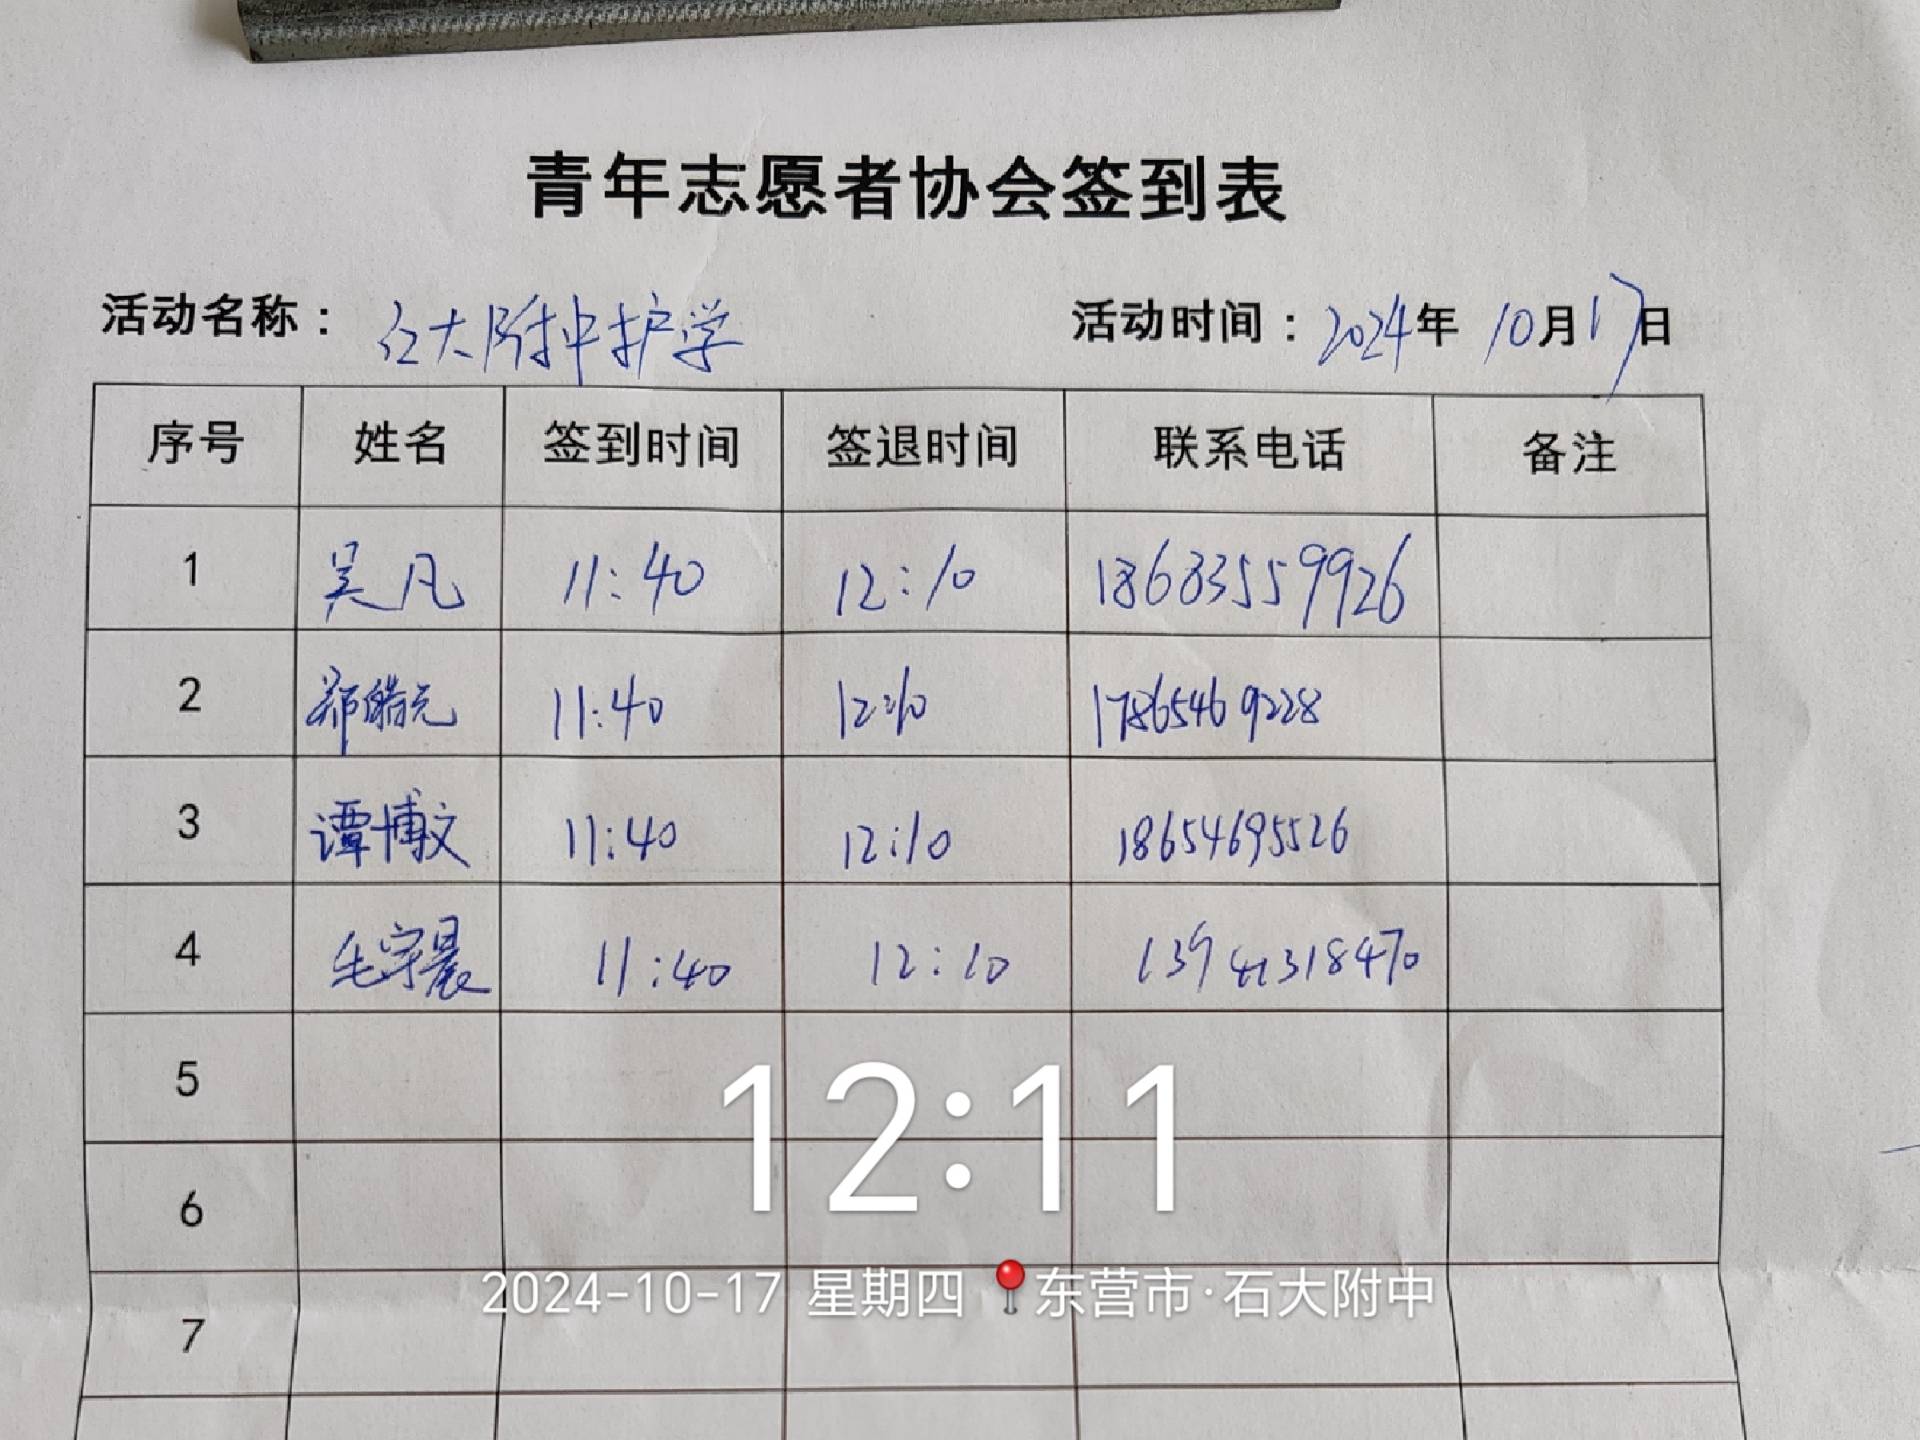 青年志愿者协会签到表
活动名称： 石大附中护学 活动时间：2024年 10月17日
序号 姓名 签到时间 签退时间 联系电话 备注
1 吴凡 11:40 12:10 18683559926
2 郑皓元 11:40 12:10 17865469228
3 谭博文 11:40 12:10 18654695526
4 毛宇晨 11:40 12:10 13941318470
5
12:11
6
2024-10-17 星期四 东营市·石大附中
7